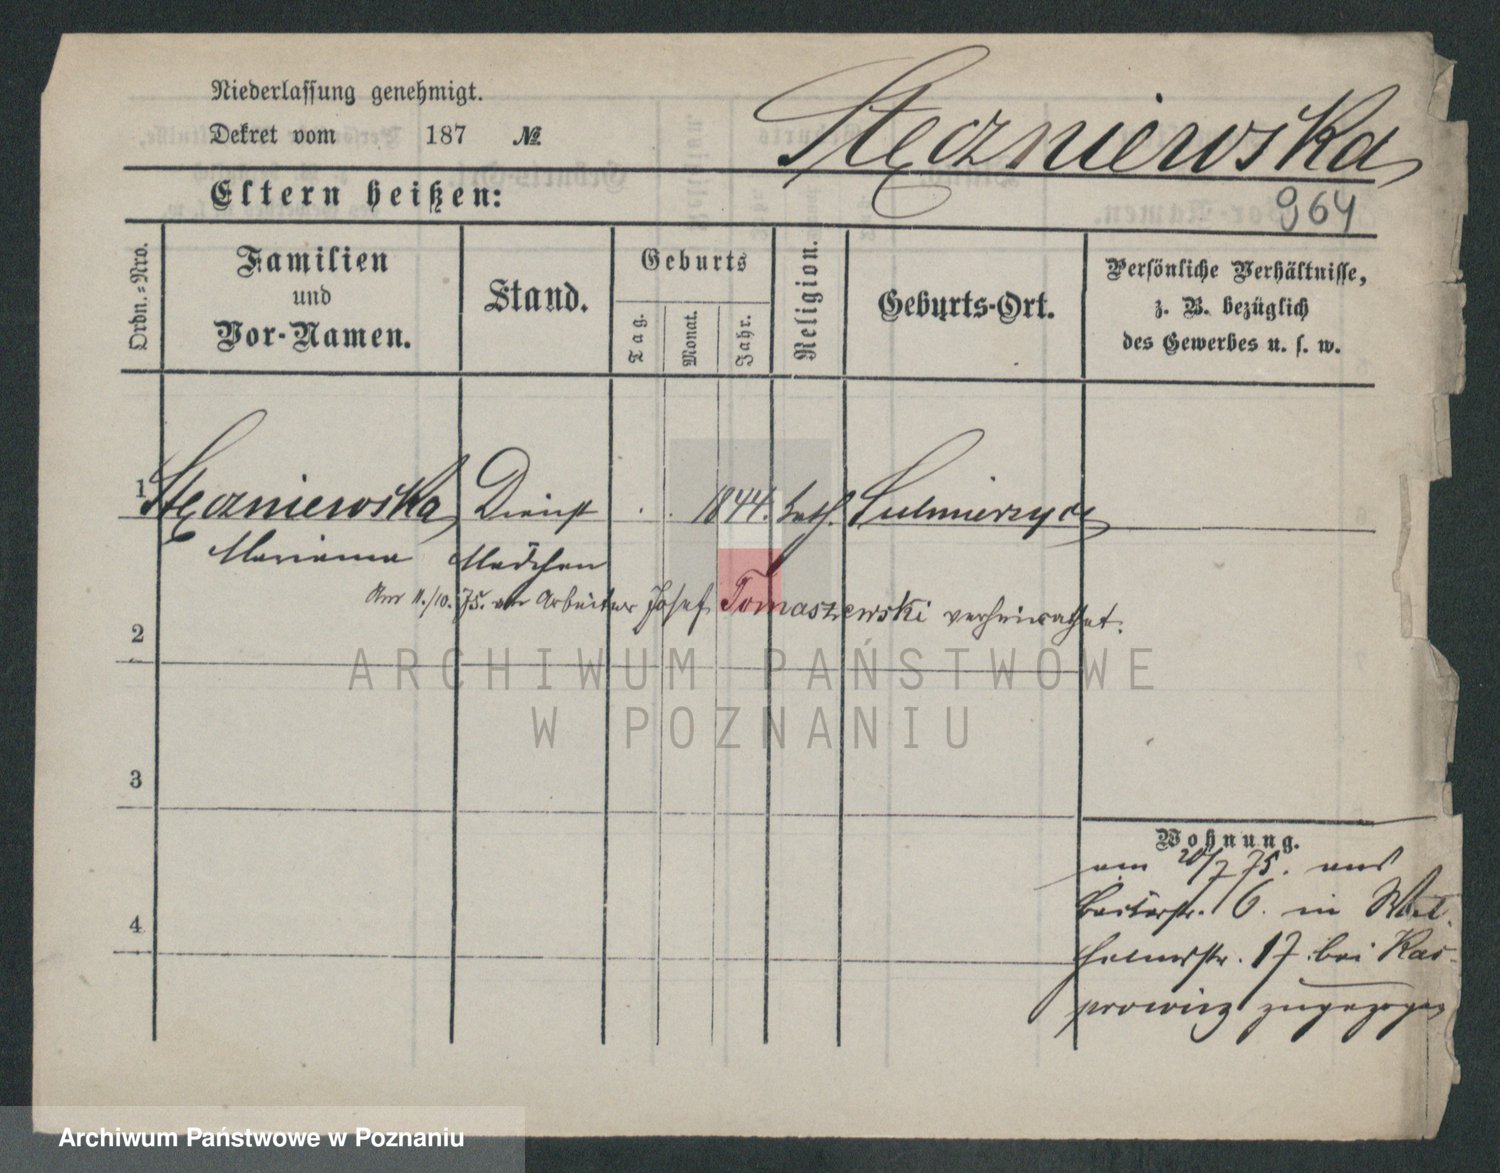 Niederlassung genehmigt.
Dekret vom 187 №
Stęczniewska
964
Eltern heißen:
Ordn.-Nro.
Familien
und
Vor-Namen.
Stand.
Geburts
Tag.
Monat.
Jahr.
Religion.
Geburts-Ort.
Persönliche Verhältnisse,
z. B. bezüglich
des Gewerbes u. s. w.
1 Stęczniewska Dienst 1844. kath. Sulmierzyce
Marianna Mädchen
Am 11./10. 75. an Arbeiter Josef Tomaszewski verheirathet.
2
3
4
Wohnung.
am 20/7 75. aus
6. in Wil-
helmstr. 17 bei Kas-
prowicz zugezogen
ARCHIWUM PAŃSTWOWE
W POZNANIU
Archiwum Państwowe w Poznaniu